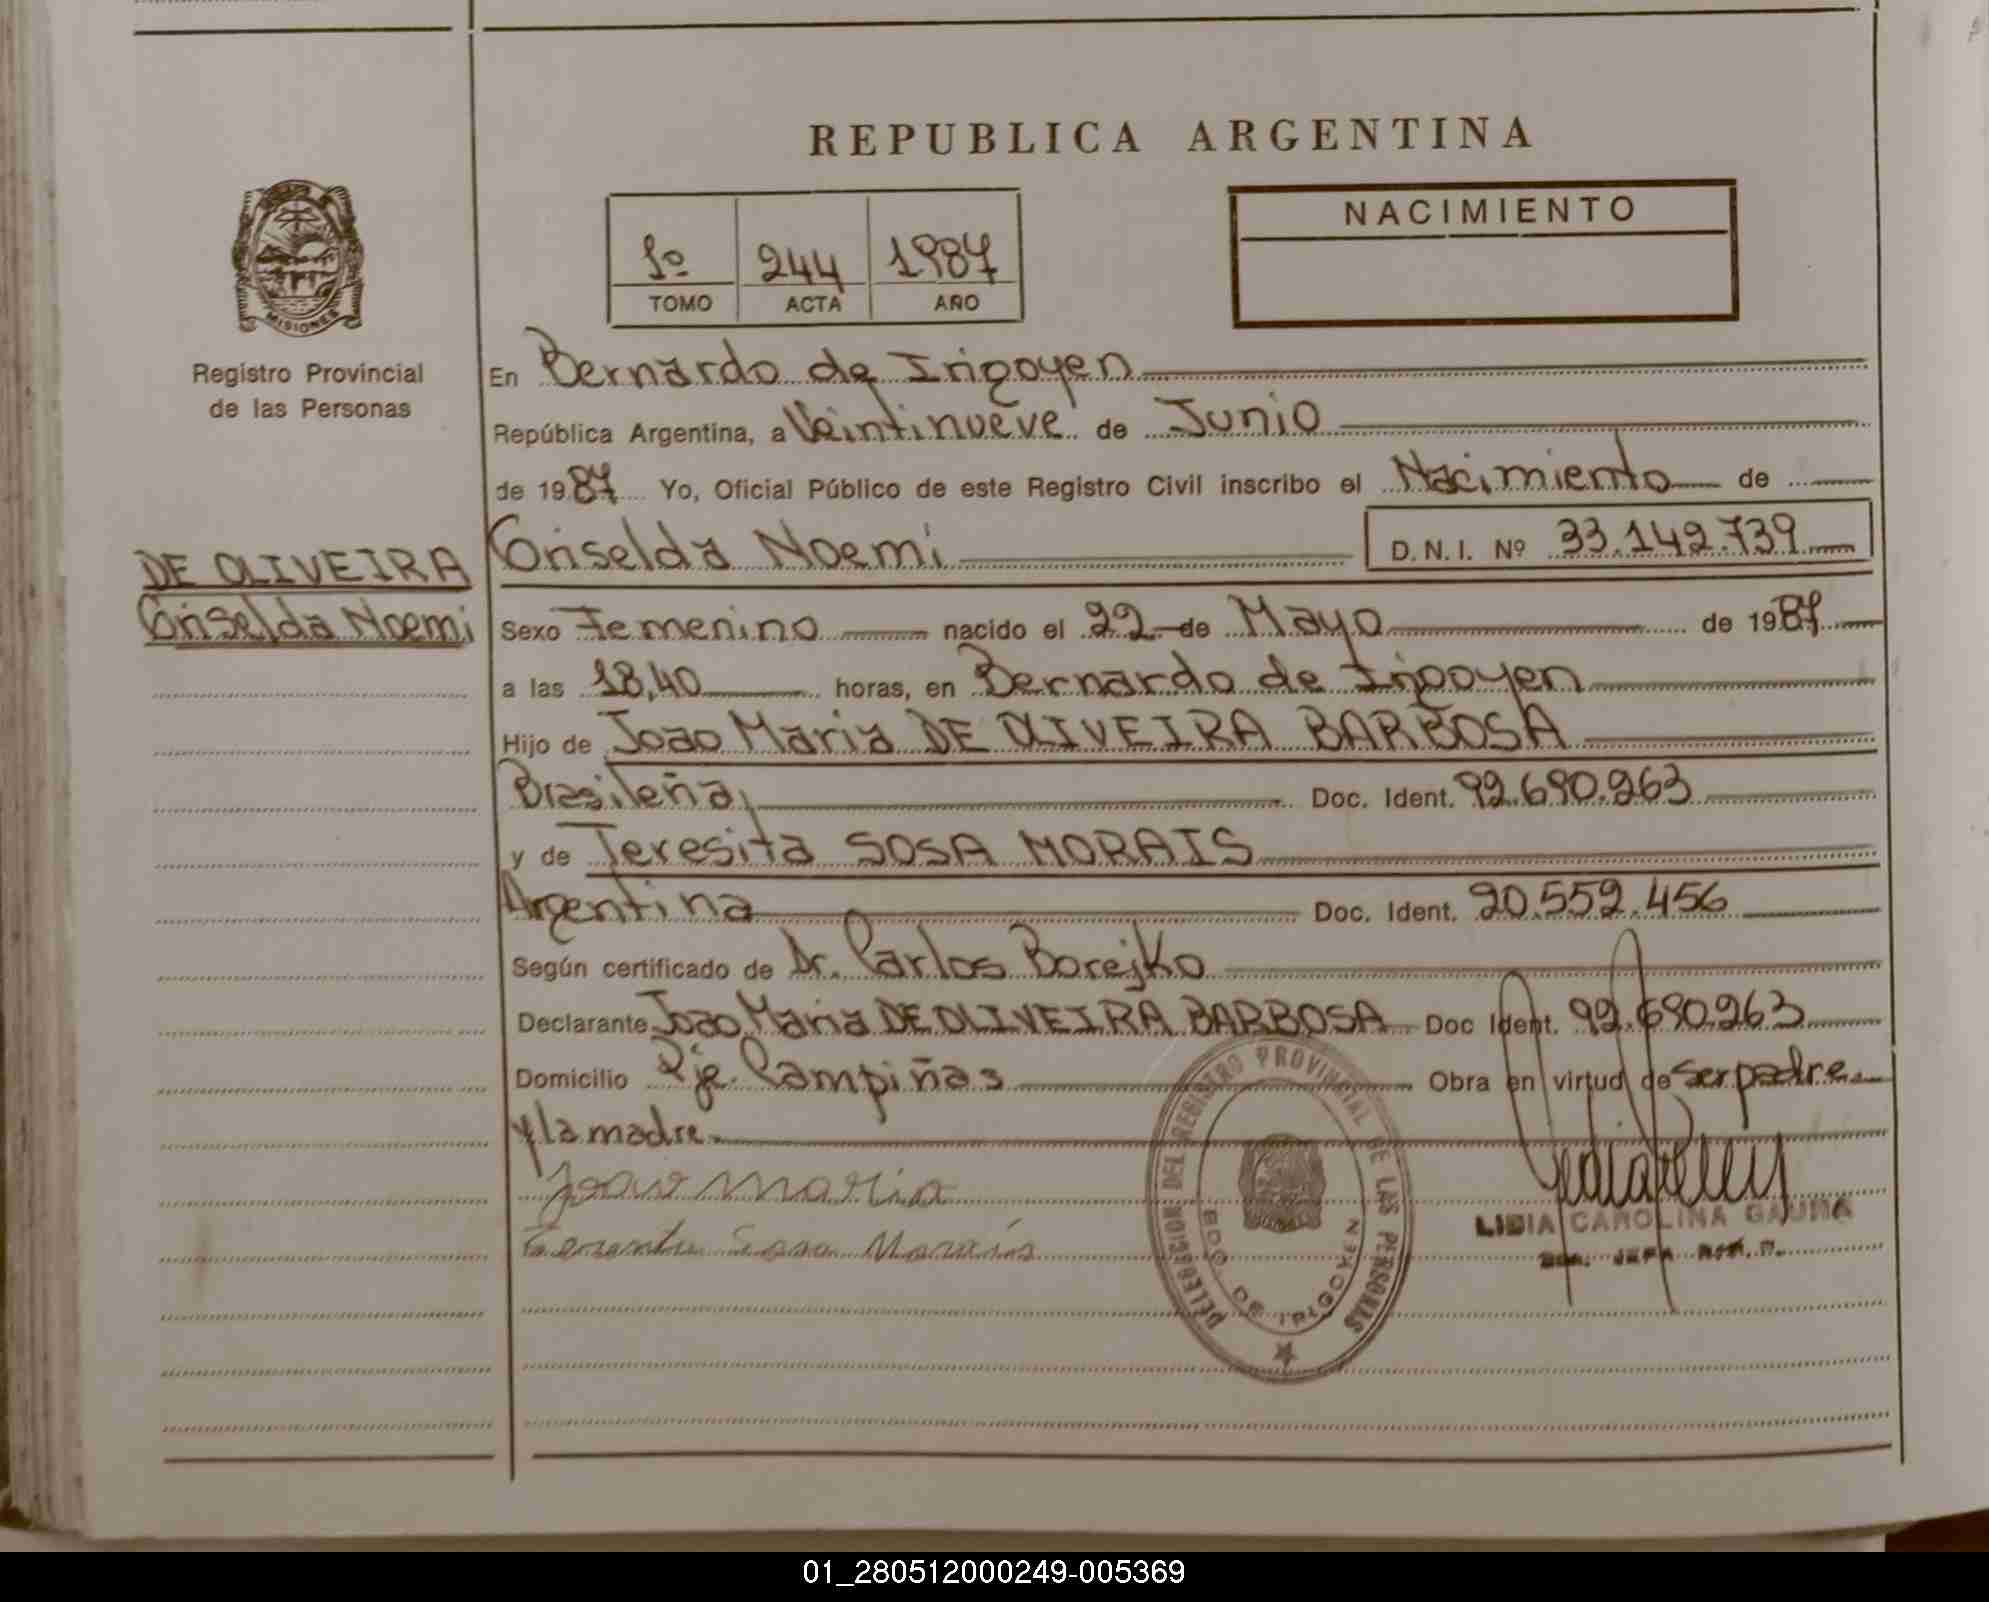 REPUBLICA ARGENTINA
NACIMIENTO
1º 244 1987
TOMO ACTA AÑO
MISIONES
Registro Provincial
de las Personas
En Bernardo de Irigoyen
República Argentina, a Veintinueve de Junio
de 1987 Yo, Oficial Público de este Registro Civil inscribo el Nacimiento de
DE OLIVEIRA
Griselda Noemi
Griselda Noemi D.N.I. Nº 33.142.739
Sexo Femenino nacido el 22 de Mayo de 1987
a las 18,40 horas, en Bernardo de Irigoyen
Hijo de Joao Maria DE OLIVEIRA BARBOSA
Brasileña, Doc. Ident. 92.690.263
y de Teresita SOSA MORAIS
Argentina Doc. Ident. 20.552.456
Según certificado de Dr. Carlos Borejko
Declarante Joao Maria DE OLIVEIRA BARBOSA Doc Ident. 92.690.263
Domicilio Pje. Campiñas Obra en virtud de ser padre
y la madre.
Joao Maria
Sosa Morais
DELEGACION DEL REGISTRO PROVINCIAL DE LAS PERSONAS
BDO. DE IRIGOYEN
LIDIA CAROLINA GAUNA
JEFA
01_280512000249-005369